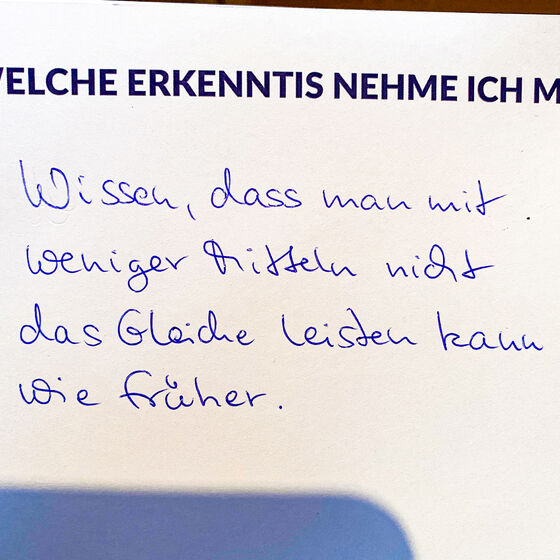 WELCHE ERKENNTIS NEHME ICH M
Wissen, dass man mit
weniger Mitteln nicht
das Gleiche leisten kann
wie früher.